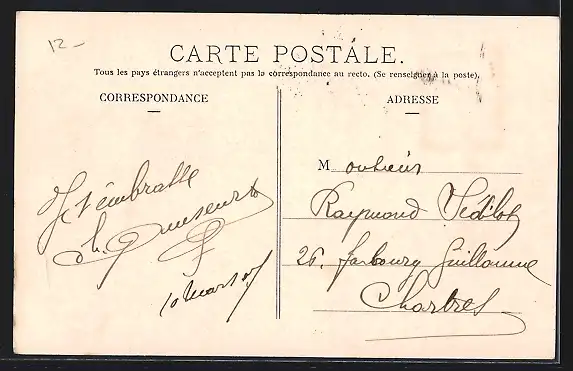 12 -
CARTE POSTALE.
Tous les pays étrangers n'acceptent pas la correspondance au recto. (Se renseigner à la poste).
CORRESPONDANCE
ADRESSE
Je t'embrasse
10 Mars 05
Monsieur
Raymond
26. faubourg Guillaume
Chartres